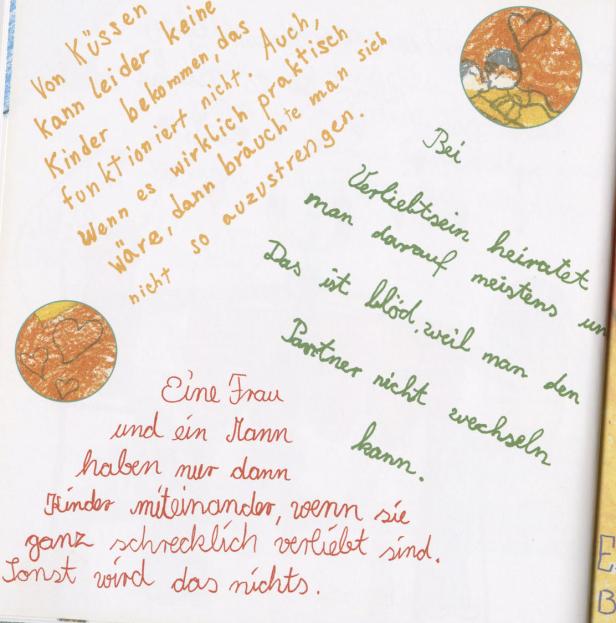 Von Küssen
kann leider keine
Kinder bekommen, das
funktioniert nicht. Auch,
wenn es wirklich praktisch
wäre, dann bräuchte man sich
nicht so auzustrengen.
Bei
Verliebtsein heiratet
man darauf meistens un
Das ist blöd, weil man den
Partner nicht wechseln
kann.
Eine Frau
und ein Mann
haben nur dann
Kinder miteinander, wenn sie
ganz schrecklich verliebt sind.
Sonst wird das nichts.
E
B